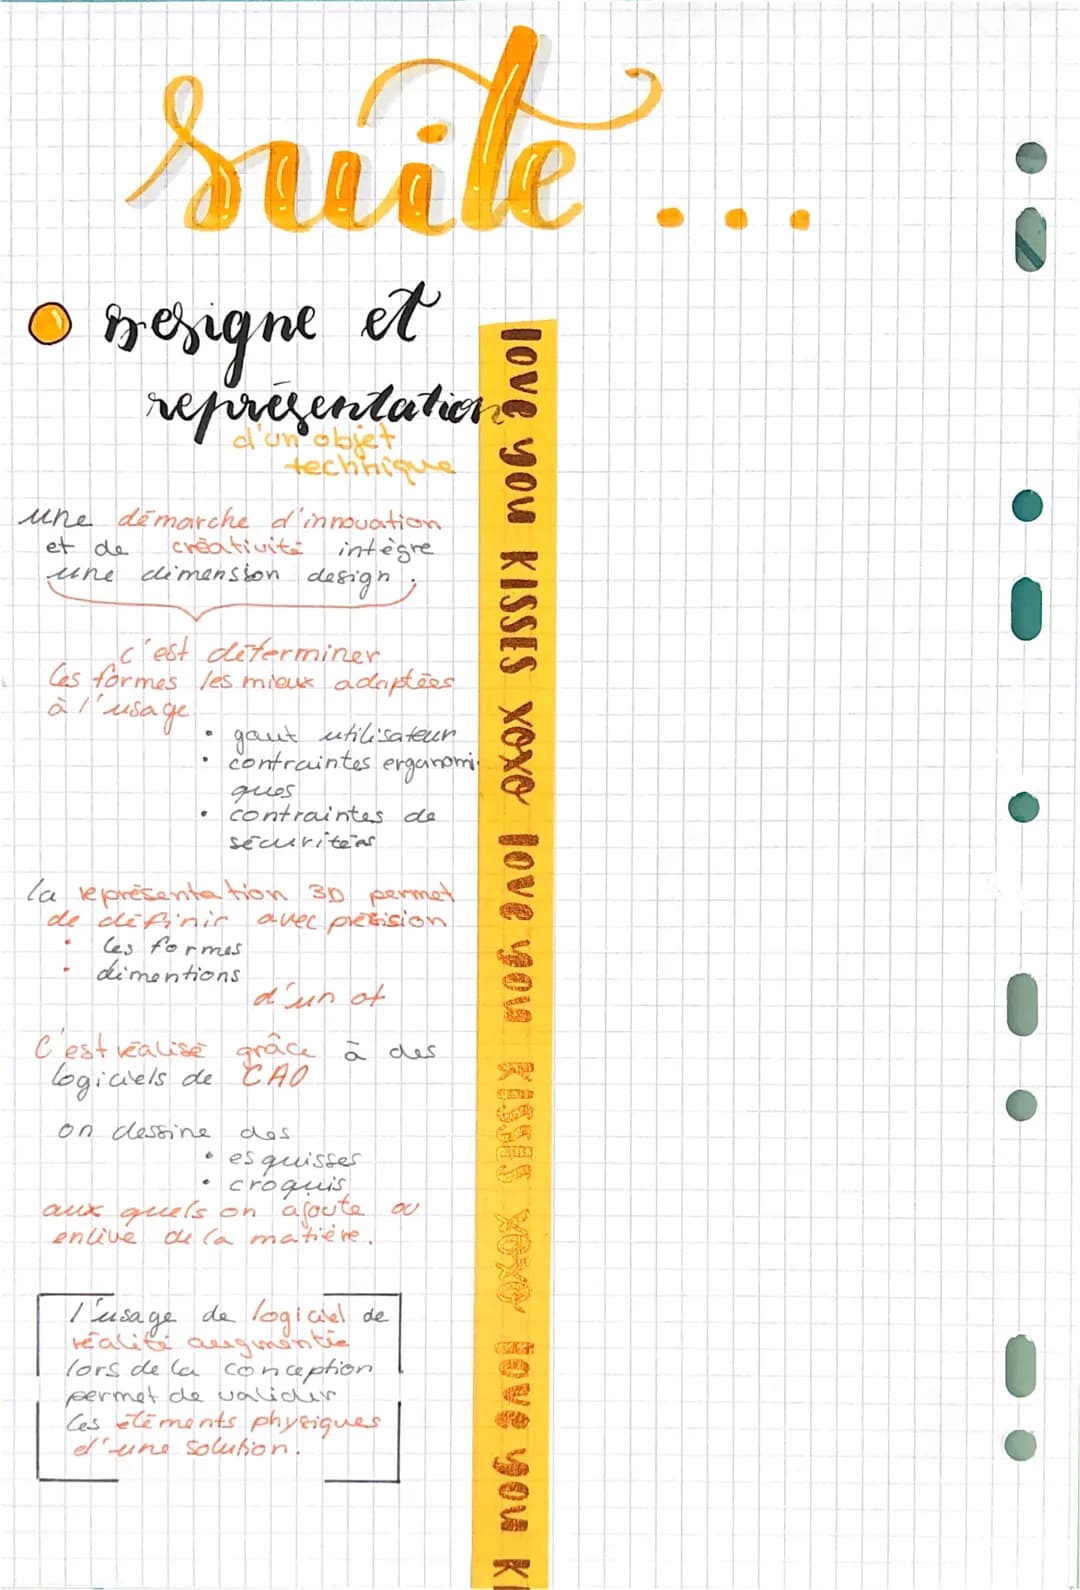 suite ...
Designe et
représentation
d'un objet
technique
une démarche d'innovation
et de créativité intègre
une dimension design.
c'est déterminer
les formes les mieux adaptées
à l'usage
• gout utilisateur
• contraintes ergonomi-
ques
• contraintes de
sécuritées
la représentation 3D permet
de définir avec précision
• les formes
• dimentions
d'un ot
C'est réalisé grâce à des
logiciels de CAO
on dessine des
• esquisses
• croquis
aux quels on ajoute ou
enlive de la matière.
l'usage de logiciel de
réalité augmentée
lors de la conception
permet de valider
les éléments physiques
d'une solution.
love you KISSES XOXO love you KISSES XOXO love you KI